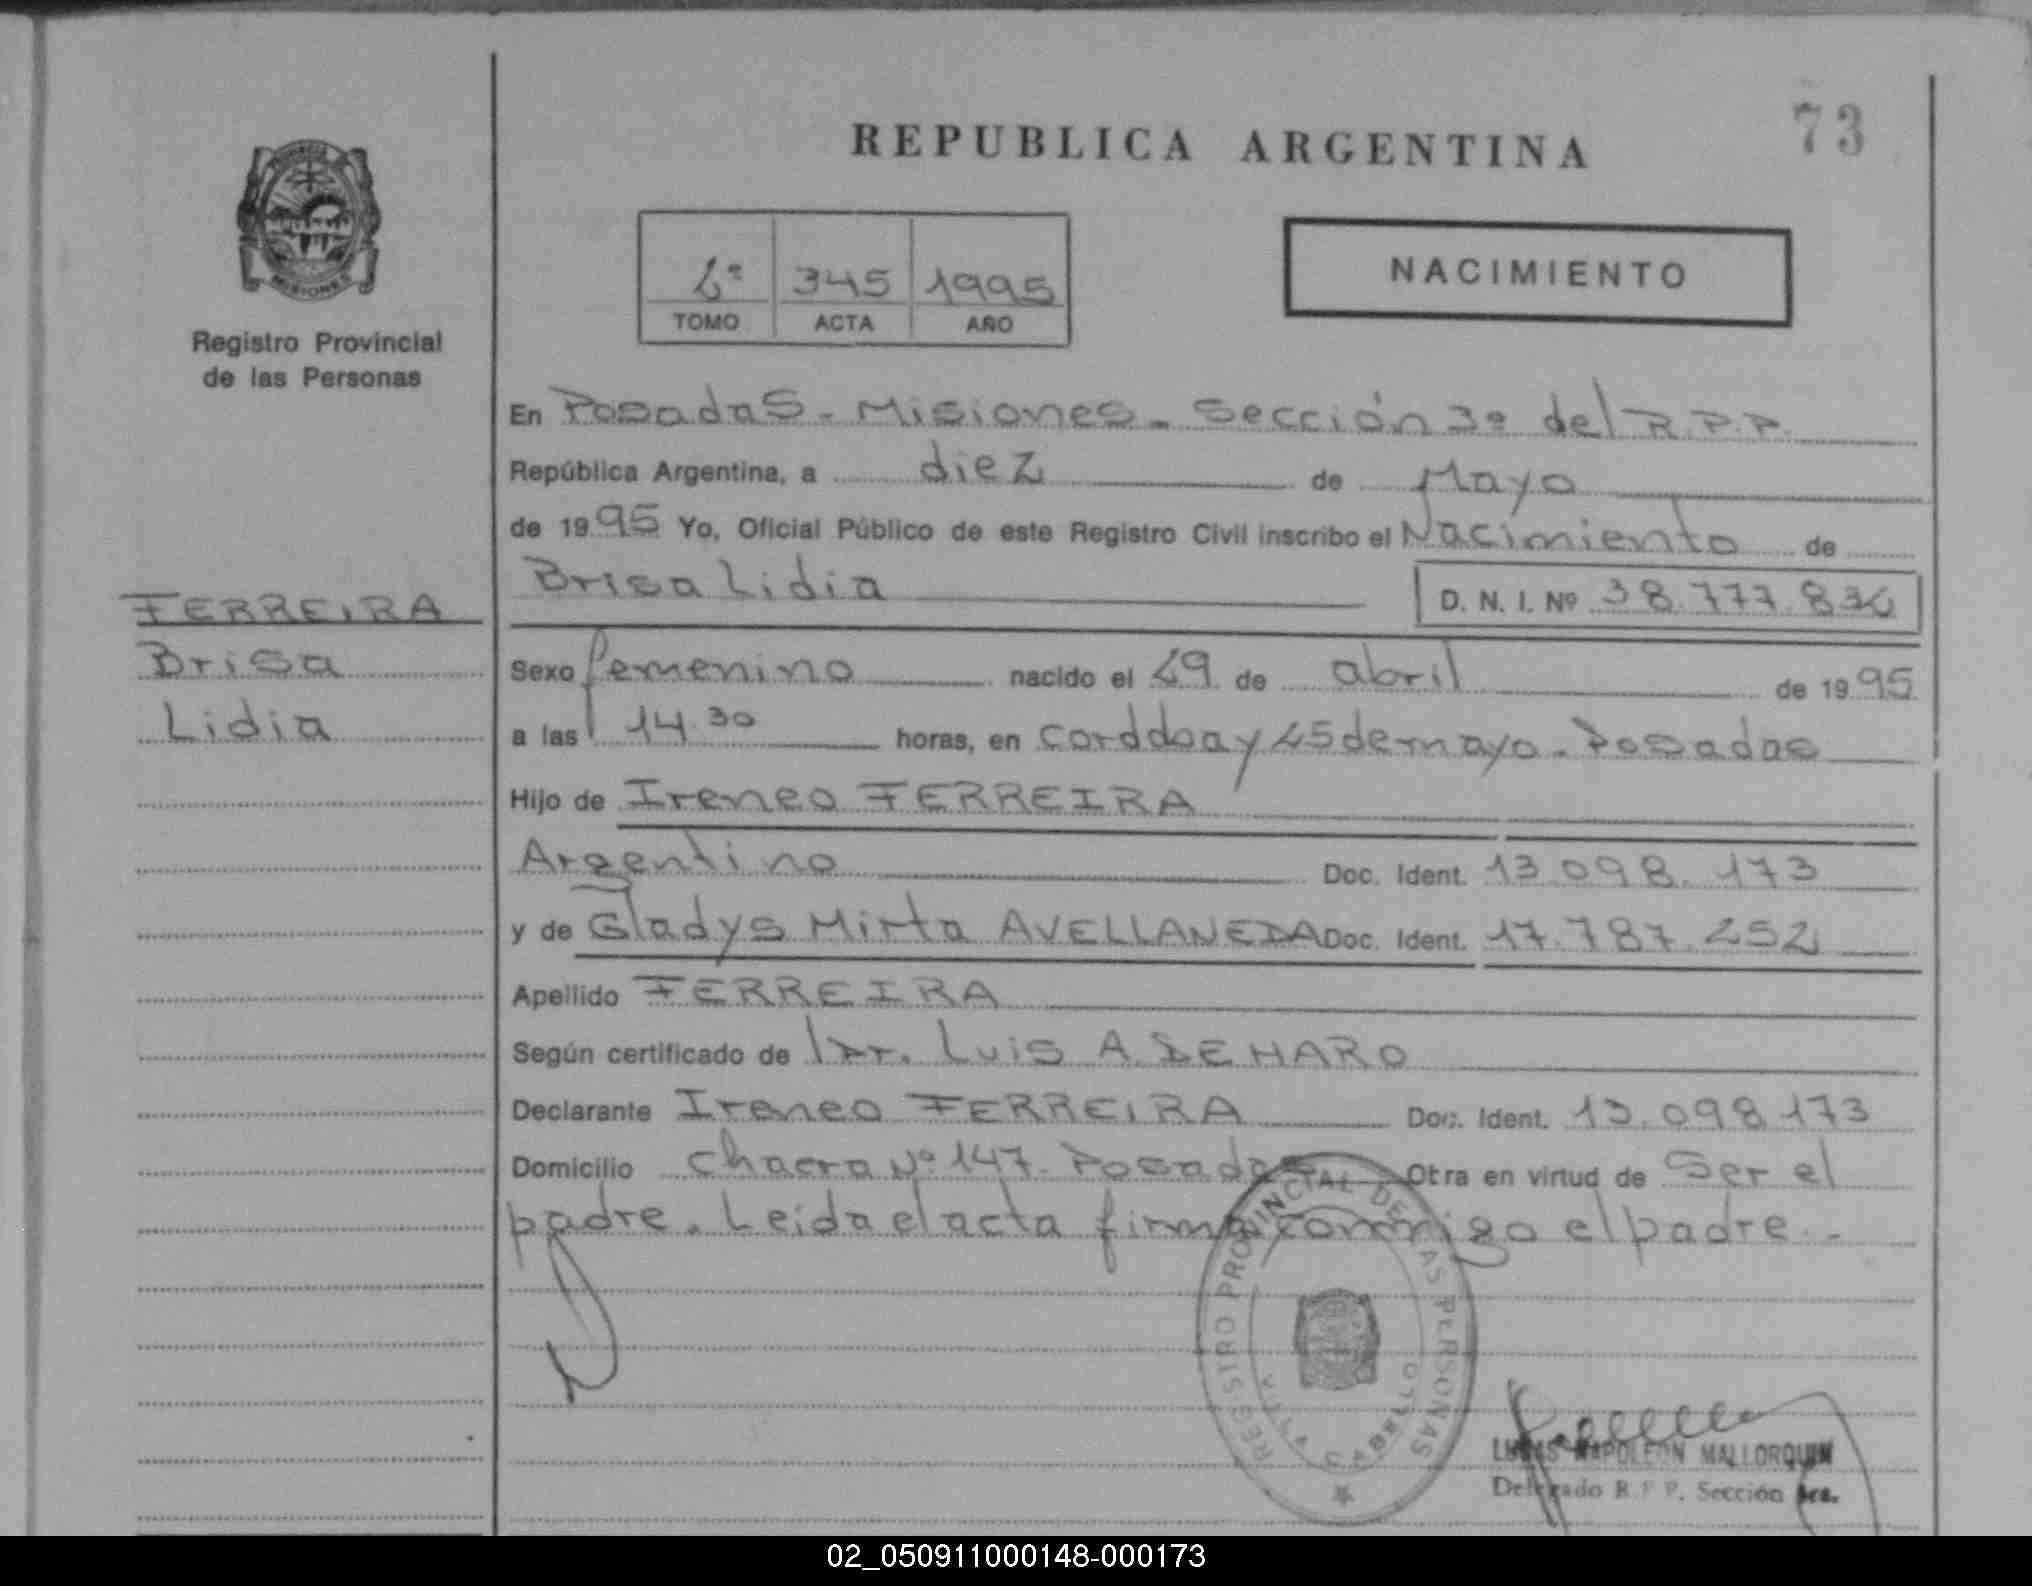 73
REPUBLICA ARGENTINA
MISIONES
Registro Provincial
de las Personas
2º 345 1995
TOMO ACTA AÑO
NACIMIENTO
En Posadas - Misiones - Sección 3º del R.P.P.
República Argentina, a diez de Mayo
de 1995 Yo, Oficial Público de este Registro Civil inscribo el Nacimiento de
Brisa Lidia D. N. I. Nº 38.777.836
FERREIRA
Brisa
Lidia
Sexo femenino nacido el 29 de abril de 1995
a las 14.30 horas, en Corddoa y 25 de mayo - Posadas
Hijo de Ireneo FERREIRA
Argentino Doc. Ident. 13.098.173
y de Gladys Mirta AVELLANEDA Doc. Ident. 17.787.252
Apellido FERREIRA
Según certificado de Dr. Luis A. DE HARO
Declarante Ireneo FERREIRA Doc. Ident. 13.098.173
Domicilio Chacra Nº 147 - Posadas Otra en virtud de Ser el
padre. Leida el acta firma conmigo el padre.-
REGISTRO PROVINCIAL DE LAS PERSONAS
VILLA CABELLO
LUCAS NAPOLEON MALLORQUIN
Delegado R.P.P. Sección 3ra.
02_050911000148-000173